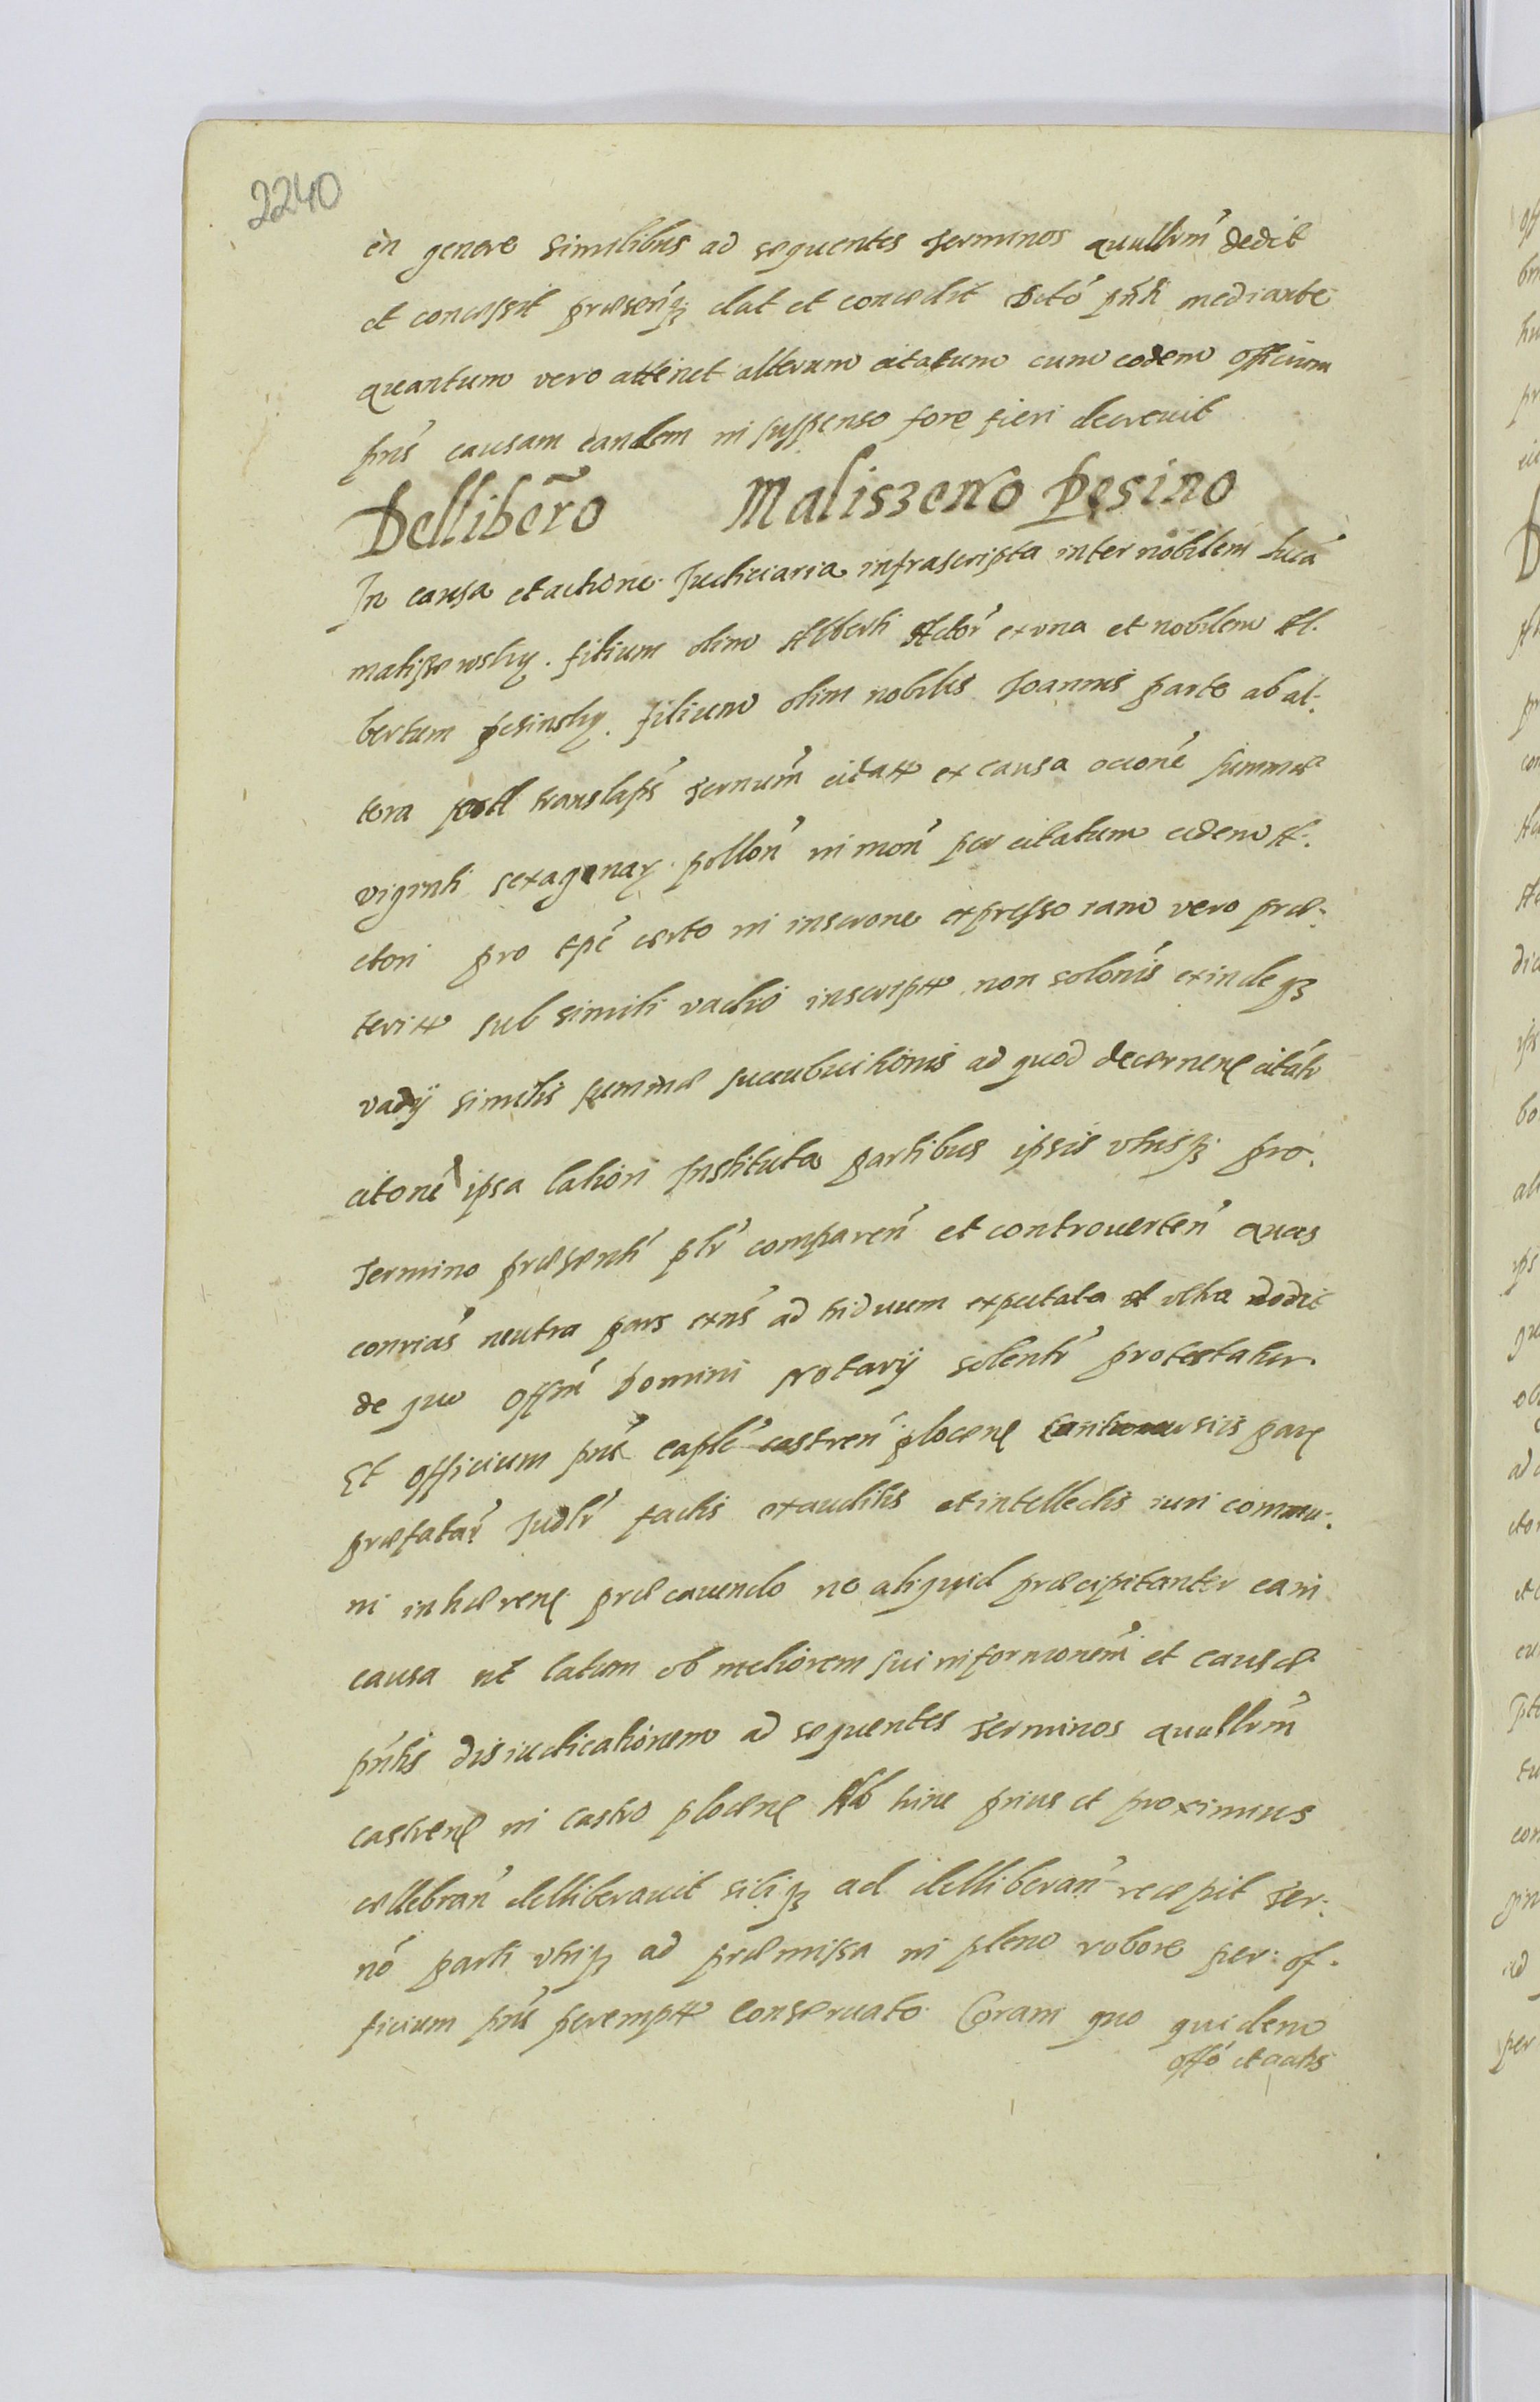 2240
in genere similibus ad sequentes terminos quærellrm̃ dedit
et concessit præsen̄qꝫ dat et concedit Dcto pn̄ti mediante
quantum vero attinet alterum citatum cum eodem officium
pn̄s causam eandem in suspenso fore fieri decrevit
Dellibero Maliszewo Pesino
In causa et actione Judiciaria infrascripta inter nobilem Lucã
maliszewsky. filium olim Alberti Actor̃ ex una et nobilem Al-
bertum pesinsky. filium olim nobilis Joannis parte ab al-
tera post translaps̃ ternum̃ citatt ex causa ocione summæ
viginti sexagenar pollon̄ in mon̄ per citatum eidem A-
ctori pro tpe certo in inscrone expresso iam vero præ-
teritt sub simili vadio inscriptt non solonis exindeqꝫ
vadij similis summæ succubuitionis ad quod decernen̄ citatr
citone ipsa latiori Instituta partibus ipsis utrisqꝫ pro
Termino præsenti plr̃ comparen̄ et controverten̄ quas
conrias neutra pars exn̄s ad triduum expectata et ultra dedit
de quo offm̃ Domini Notarij solentr̃ protestatur
Et officium pn̄s caplẽ castren̄ plocen̄ siis par
præfatar̃ Judlr̃ factis exauditis et intellectis iuri commu-
ni inhæren̄ præcavendo ne aliquid præcipitanter ea in
causa sit latum ob meliorem sui informonem̃ et causæ
pn̄tis disiudicationem ad sequentes terminos quærellrm̃
castren̄ in castro plocen̄ Ab hinc prius et proximius
cællebran̄ delliberavit sibiqꝫ ad delliberan̄ recæpit ter-
no parti utriqꝫ ad præmissa in pleno robore per of-
ficium pn̄s peremptt conservato Coram quo quidem
offo et actis